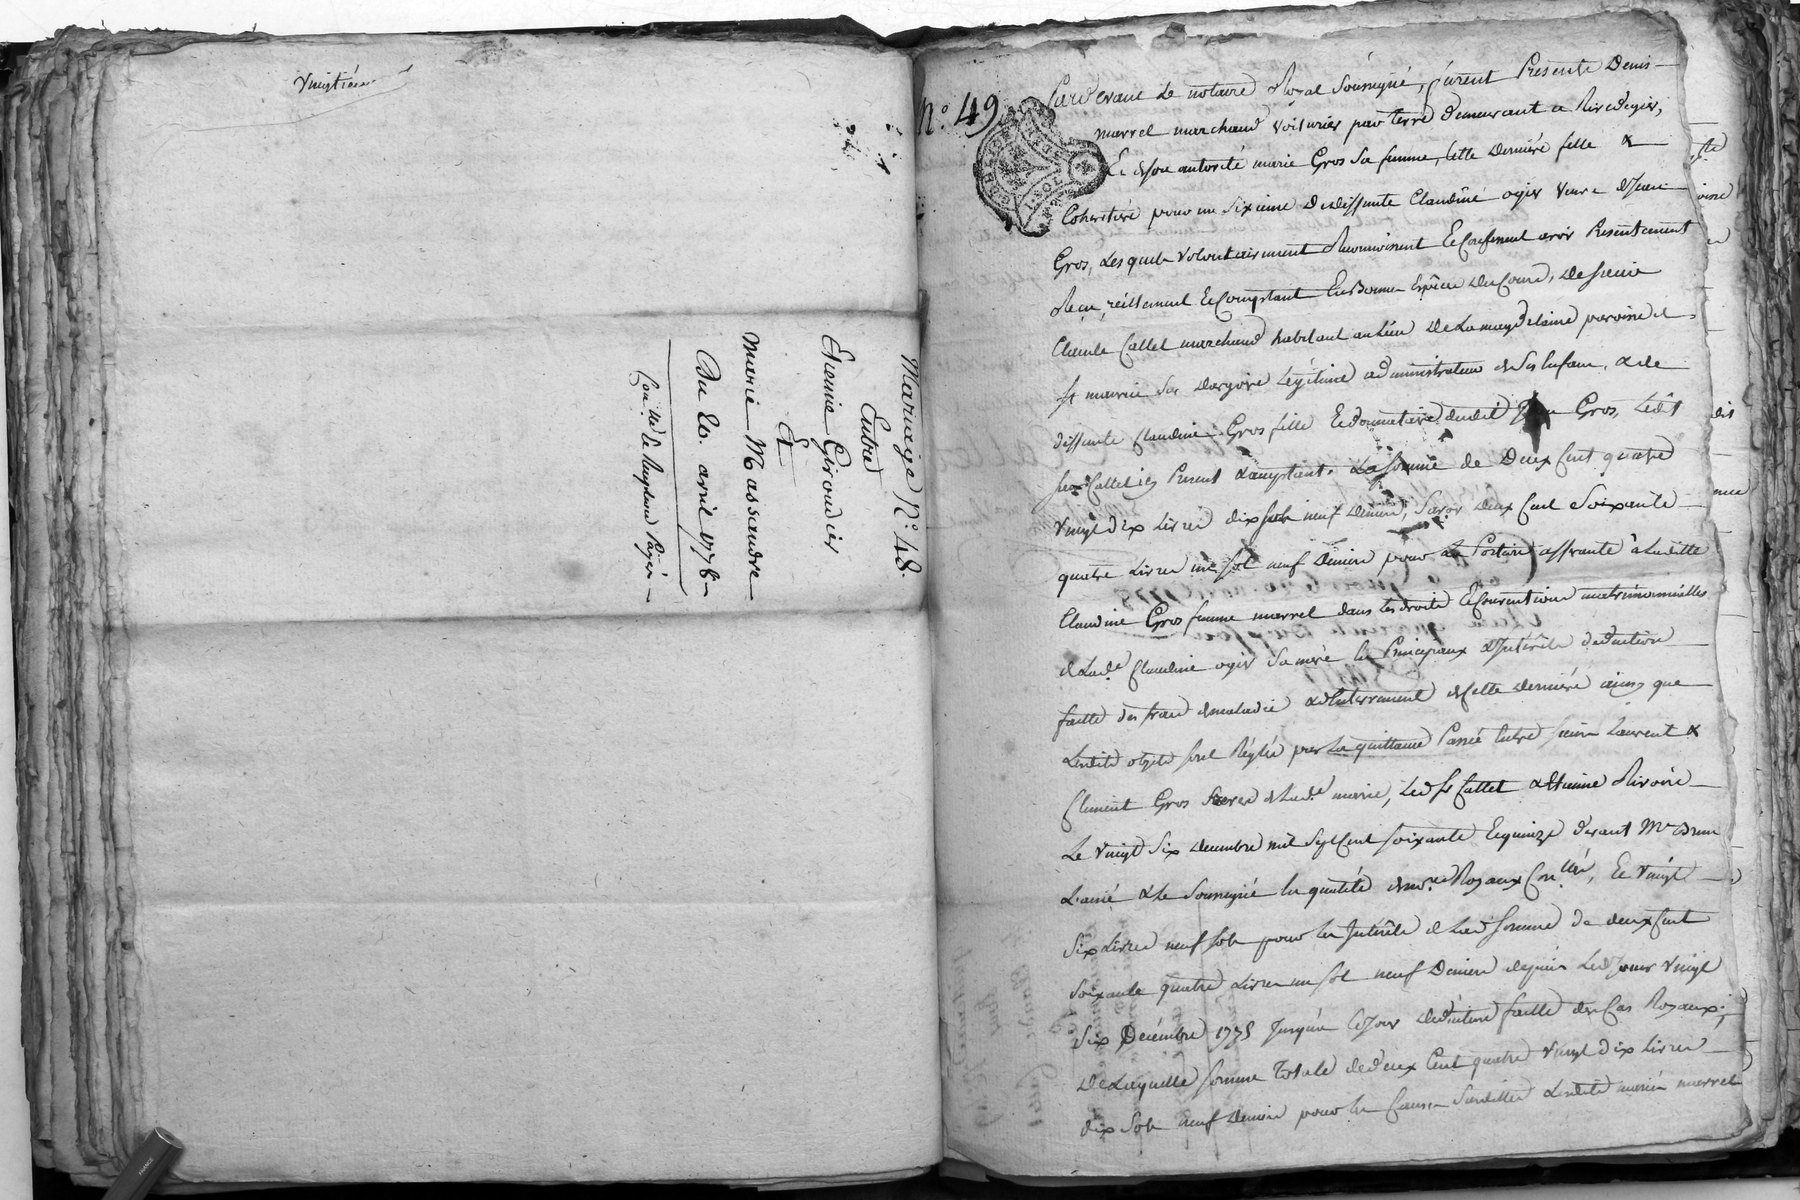 Vingtième
Mariage N.º 48.
Entre
Etienne Giroudier
&
Marie Massardre
Du 20. avril 1778
N.º 49
Pardevant Le notaire Royal Soussigné, furent Presents Denis
marrel marchand voiturier par terre demeurant a Rivedegier,
Et de son autorité marie Gros sa femme, cette Derniére fille &
Cohéritiére pour un sixieme de deffunte Claudine ogier veuve de Jean
Gros, Lesquels volontairement Reconnoissent Et Confessent avoir Presentement
Recu, réellement Et Comptant En Bonnes Espéces de Cours, de sieur
Claude Cattel marchand habitant au Lieu de La magdelaine paroisse de
st maurice sur dargoire Légitime administrateur de ses Enfans, & de
deffunte Claudine Gros fille Et donnataire dudit Jean Gros, Ledit
sieur Cattel icy Present Acceptant. La somme de Deux Cent quatre
vingt dix Livres dix sols neuf Deniers, savoir deux Cent Soixante
quatre Livres un sol neuf Deniers pour La Portion affrante à Laditte
Claudine Gros femme marrel dans les droits Et Conventions matrimonialles
de Lad.e Claudine ogier sa mere En Principaux & Intérêts deduction
faitte des frais de maladie & d'Enterrement de cette derniére ainsy que
Lesdits objets sont Réglés par La quittance Passée Entre sieurs Laurent &
Clement Gros freres de Lad.e marie, Led. sr Cattel & Etienne Rivoire
Le vingt six decembre mil sept Cent soixante Et quinze devant Me Brun
L'ainé & Le Soussigné En qualité de no.res Royaux Con.llers, Et vingt
six Livres neuf sols pour Les Intérêts de Lad. somme de deux Cent
soixante quatre Livres un sol neuf Deniers depuis Led. Jour vingt
six Décembre 1775 Jusqu'a ce Jour déduction faitte des Cas Royaux;
De Laquelle somme Totale de deux Cent quatre vingt dix Livres
dix sols neuf Deniers pour Les Causes Susdittes Lesdits mariés marrel